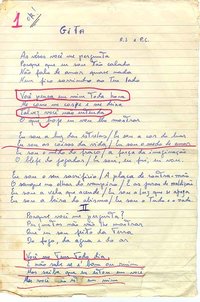 1
GITA
R.S. e P.C.
Às vezes você me pergunta
Porque que eu sou tão calado
Não falo de amor quase nada
Nem fico sorrindo ao teu lado
Você pensa em mim toda hora
Me come me cospe e me deixa
Talvez você não entenda
O que hoje eu vou lhe mostrar
Eu sou a luz das estrelas / Eu sou a cor do luar
Eu sou as coisas da vida / Eu sou o medo de amar
Eu sou o medo do fraco / a força da imaginação
O blefe do jogador / Eu sou, eu fui, eu vou
Eu sou o seu sacrifício / A placa de contra-mão
O sangue no olhar do vampiro / E as juras de maldição
Eu sou a vela que acende / Eu sou a luz que se apaga
Eu sou a beira do abismo / Eu sou o Tudo e o Nada
II
Porque você me pergunta?
Perguntas não vão lhe mostrar
Que eu sou feito da Terra
Do fogo, da água e do ar
Você me tem todo dia
E não sabe se é bom ou ruim
Mas saiba que eu estou em você
Mas você não está em mim